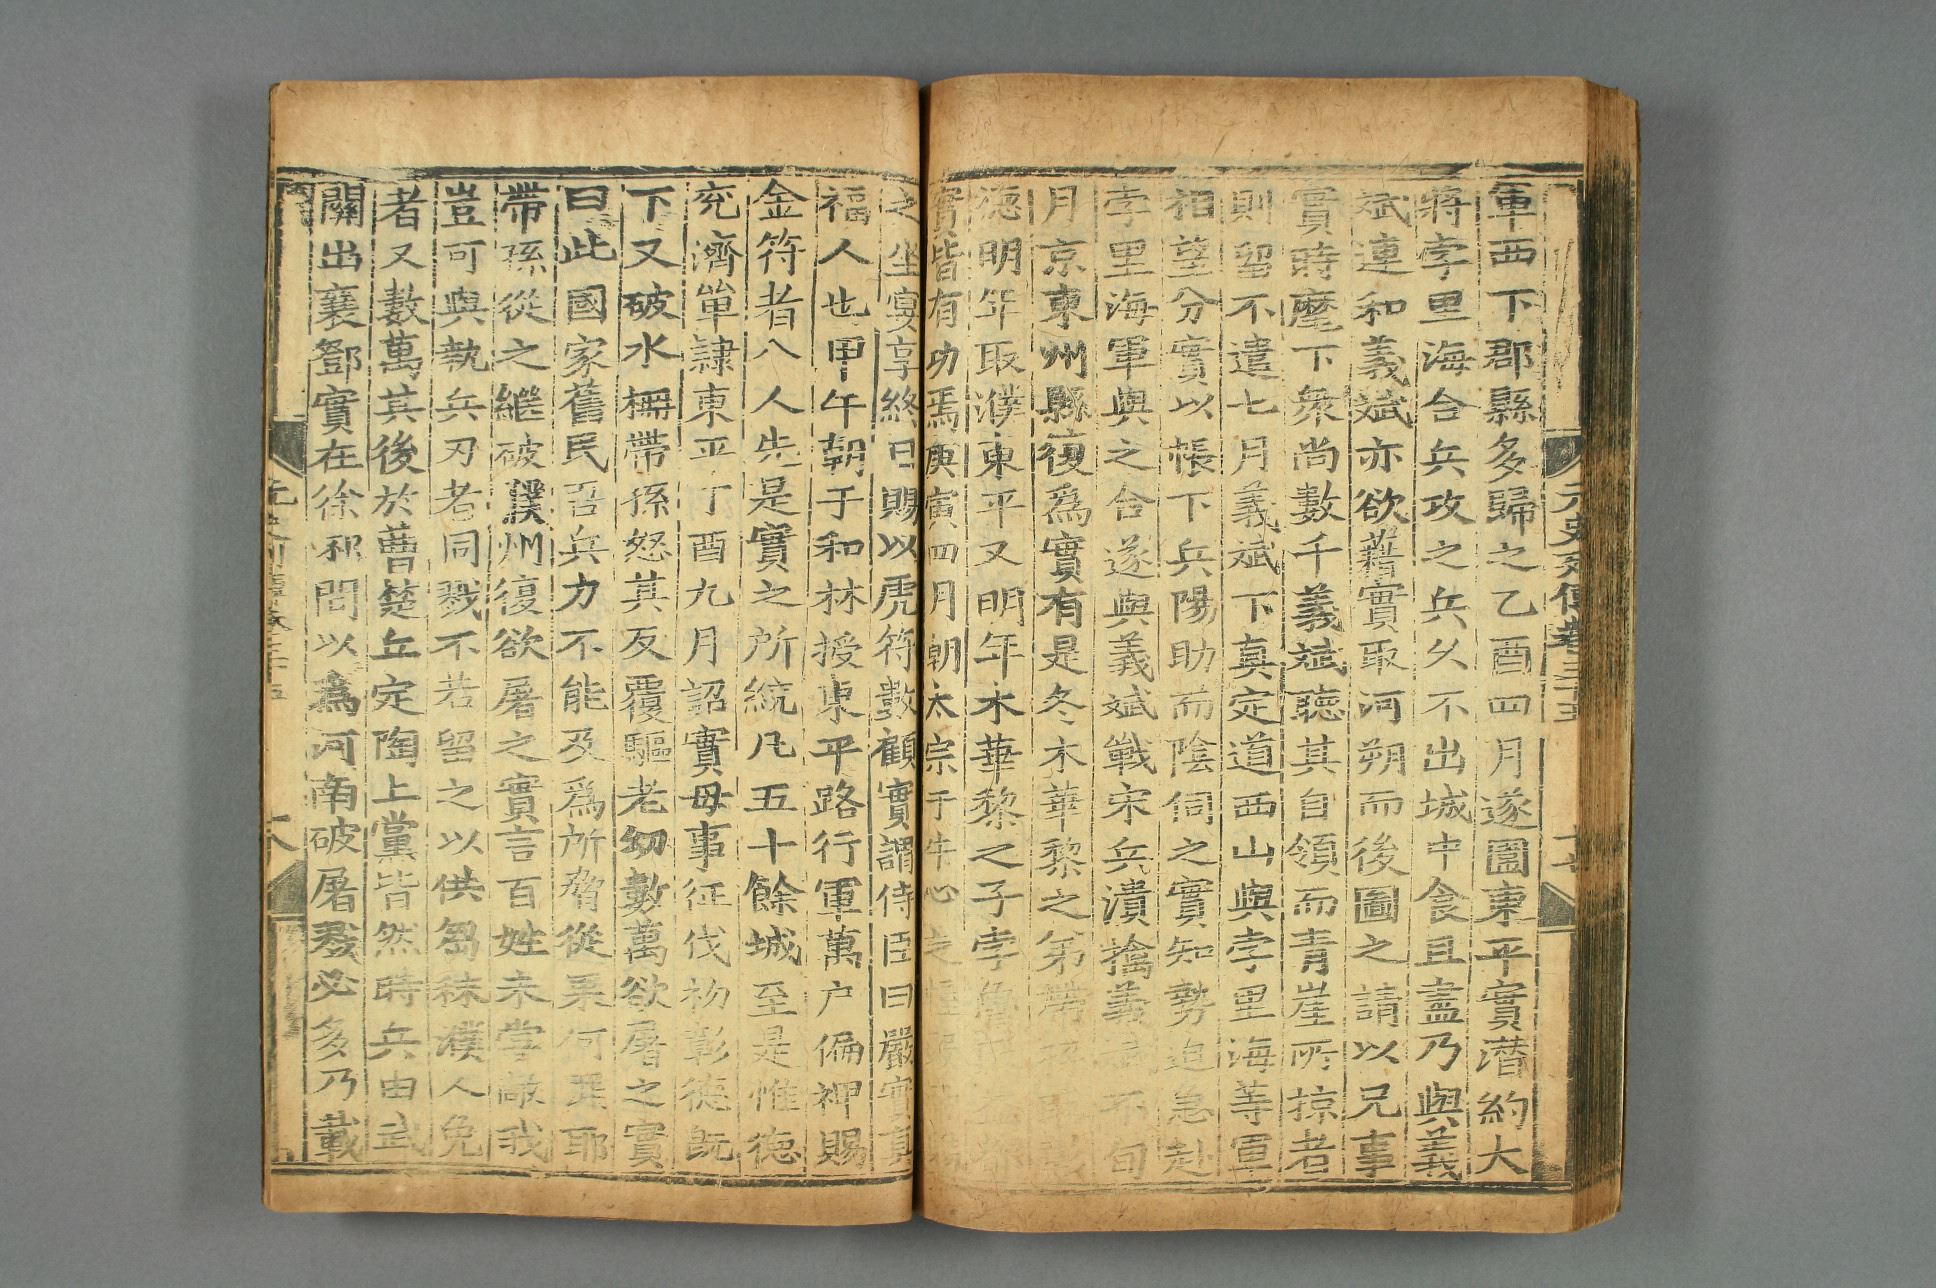 元史列傳卷三十五
十七
軍西下郡縣多歸之乙酉四月遂圍東平實潛約大
將孛里海合兵攻之兵久不出城中食且盡乃與義
斌連和義斌亦欲藉實取河朔而後圖之請以兄事
實時麾下衆尚數千義斌聽其自領而青崖所掠者
則留不遣七月義斌下真定道西山與孛里海等軍
相望分實以帳下兵陽助而陰伺之實知勢迫急赴
孛里海軍與之合遂與義斌戰宋兵潰擒義斌不旬
月京東州縣復爲實有是冬木華黎之弟帶孫
德明年取濮東平又明年木華黎之子孛魯
實皆有功焉庚寅四月朝太宗于牛心之
之坐宴享終日賜以虎符數顧實謂侍臣曰嚴實真
福人也甲午朝于和林授東平路行軍萬户偏裨賜
金符者八人先是實之所統凡五十餘城至是惟德
兖濟單隷東平丁酉九月詔實毋事征伐初彰德既
下又破水柵帶孫怒其反覆驅老幼數萬欲屠之實
曰此國家舊民吾兵力不能及爲所脅從果何罪耶
帶孫從之繼破濮州復欲屠之實言百姓未嘗敵我
豈可與執兵刃者同戮不若留之以供芻秣濮人免
者又數萬其後於曹楚丘定陶上黨皆然時兵由武
關出襄鄧實在徐邳間以爲河南破屠戮必多乃載
十八